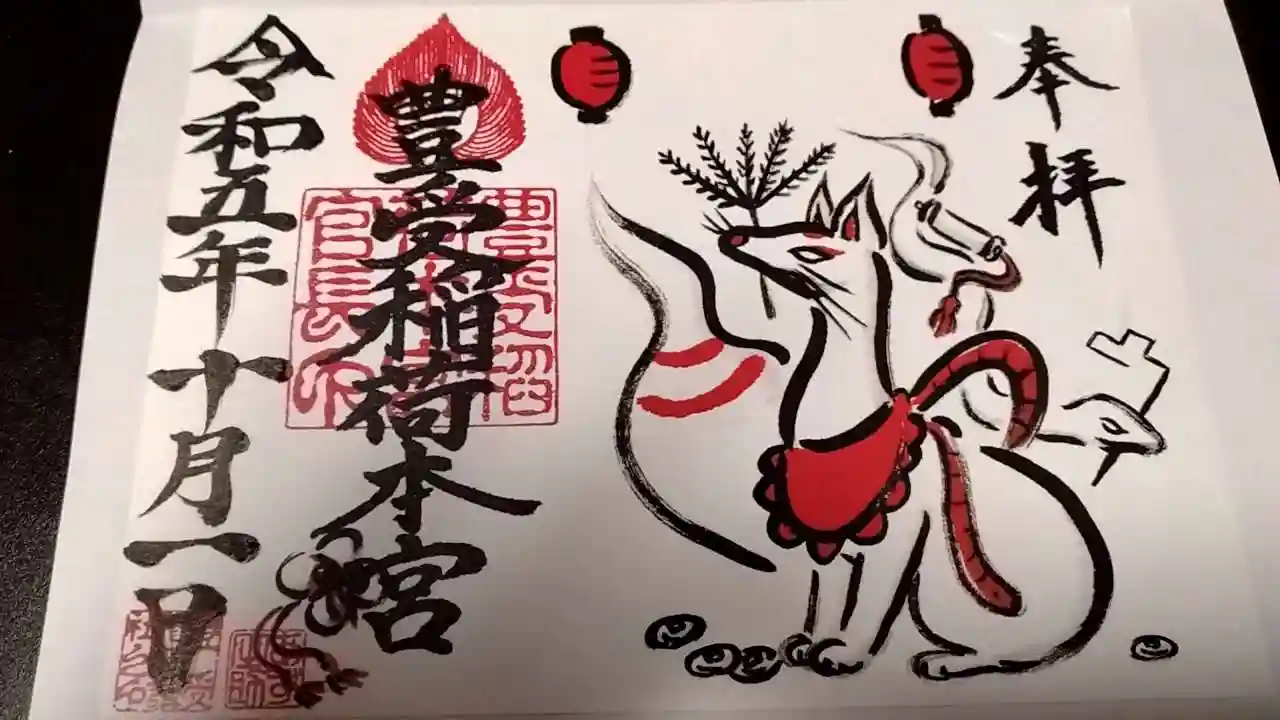 奉拝
豊受稲荷本宮
令和五年十月一日